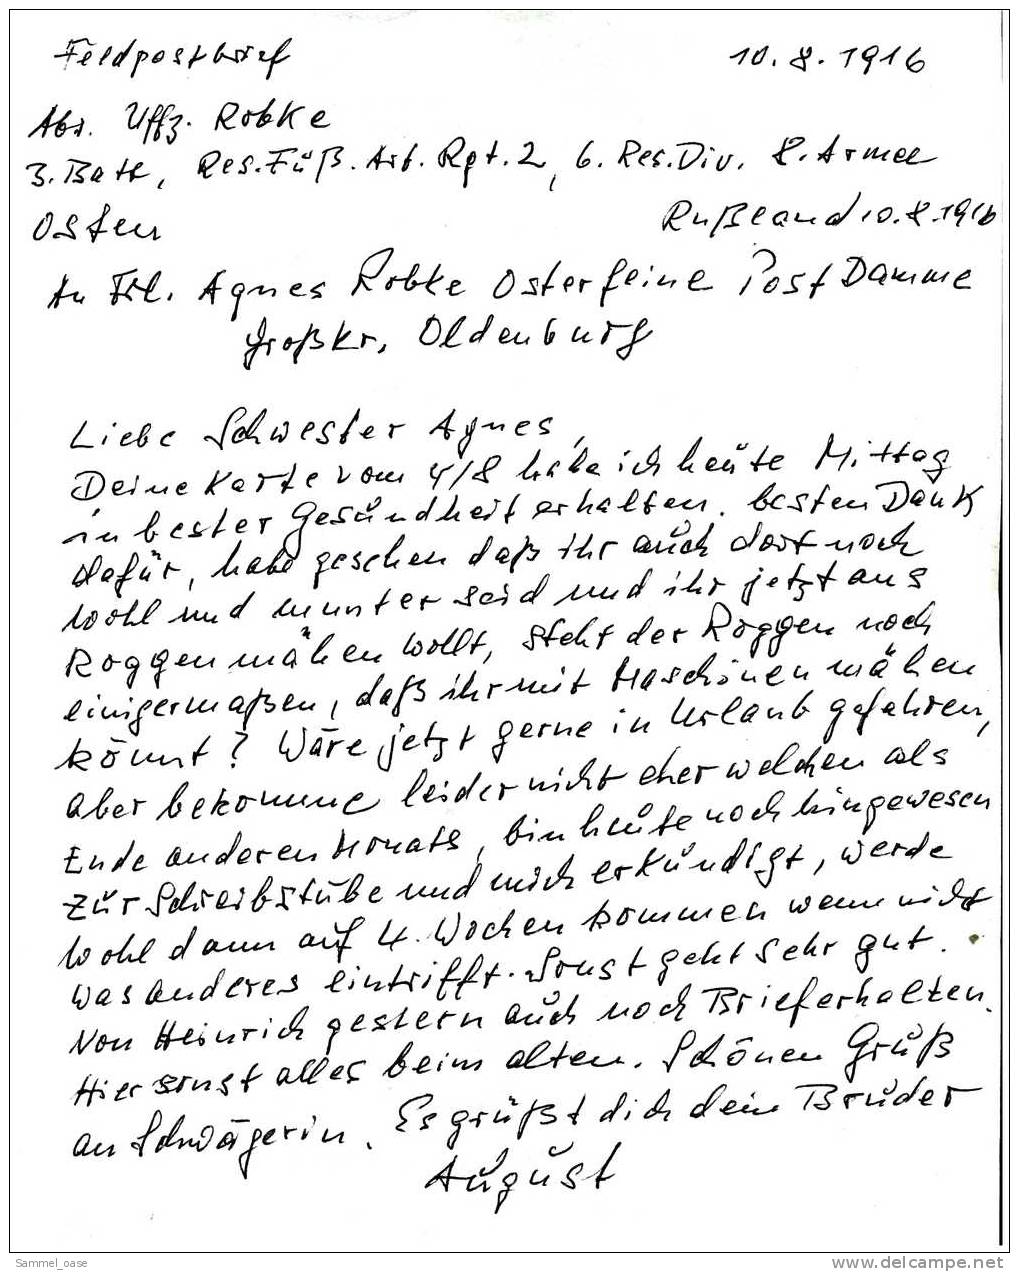 Feldpostbrief 10.8.1916
Abs. Uffz. Robke
3. Batt, Res. Fuß. Art. Rgt. 2, 6. Res. Div. 8. Armee
Osten Rußland 10.8.1916
An Frl. Agnes Robke Osterfeine Post Damme
Großhr. Oldenburg
Liebe Schwester Agnes,
Deine Karte vom 4/8 habe ich heute Mittag
in bester Gesundheit erhalten. besten Dank
dafür, habe gesehen daß ihr auch dort noch
wohl und munter seid und ihr jetzt ans
Roggenmähen wollt, steht der Roggen noch
einigermaßen, daß ihr mit Maschinen mähen
könnt? Wäre jetzt gerne in Urlaub gefahren,
aber bekomme leider nicht eher welchen als
Ende anderen Monats, bin heute noch hingewesen
zur Schreibstube und mich erkundigt, werde
wohl dann auf 4 Wochen kommen wenn nicht
was anderes eintrifft. Sonst geht sehr gut.
Von Heinrich gestern auch noch Brief erhalten.
Hier sonst alles beim alten. Schönen Gruß
an Schwägerin. Es grüßt dich dein Bruder
August
Sammel_oase
www.delcampe.net